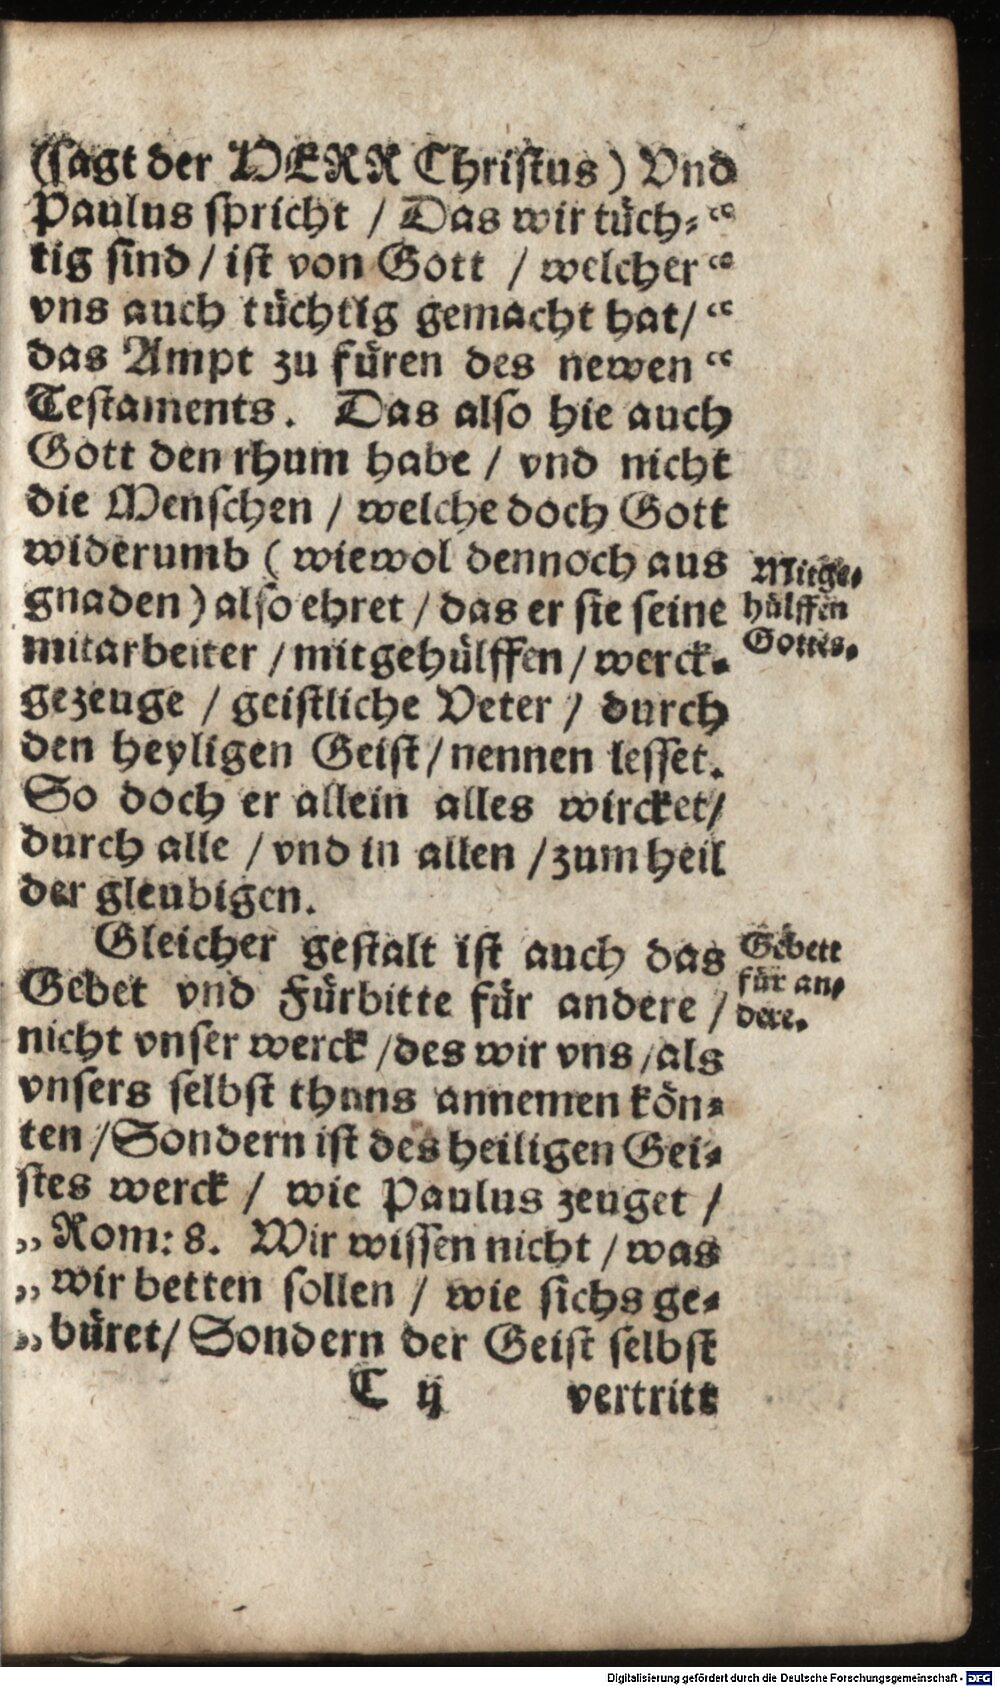 (sagt der HERR Christus) Vnd
Paulus spricht / Das wir tüch⸗ “
tig sind / ist von Gott / welcher “
vns auch tüchtig gemacht hat/ “
das Ampt zu füren des newen “
Testaments. Das also hie auch
Gott den rhum habe / vnd nicht
die Menschen / welche doch Gott
widerumb ( wiewol dennoch aus
gnaden ) also ehret / das er sie seine
mitarbeiter / mitgehülffen / werck⸗
gezeuge / geistliche Veter / durch
den heyligen Geist / nennen lesset.
So doch er allein alles wircket/
durch alle / vnd in allen / zum heil
der gleubigen.
Mitge⸗
hülffen
Gottes.
Gleicher gestalt ist auch das
Gebet vnd Fürbitte für andere /
nicht vnser werck / des wir vns / als
vnsers selbst thuns annemen kön⸗
ten / Sondern ist des heiligen Gei⸗
stes werck / wie Paulus zeuget /
„ Rom: 8. Wir wissen nicht / was
„ wir betten sollen / wie sichs ge⸗
„ büret/ Sondern der Geist selbst
Gebett
für an⸗
dere.
C ij vertritt
Digitalisierung gefördert durch die Deutsche Forschungsgemeinschaft - DFG